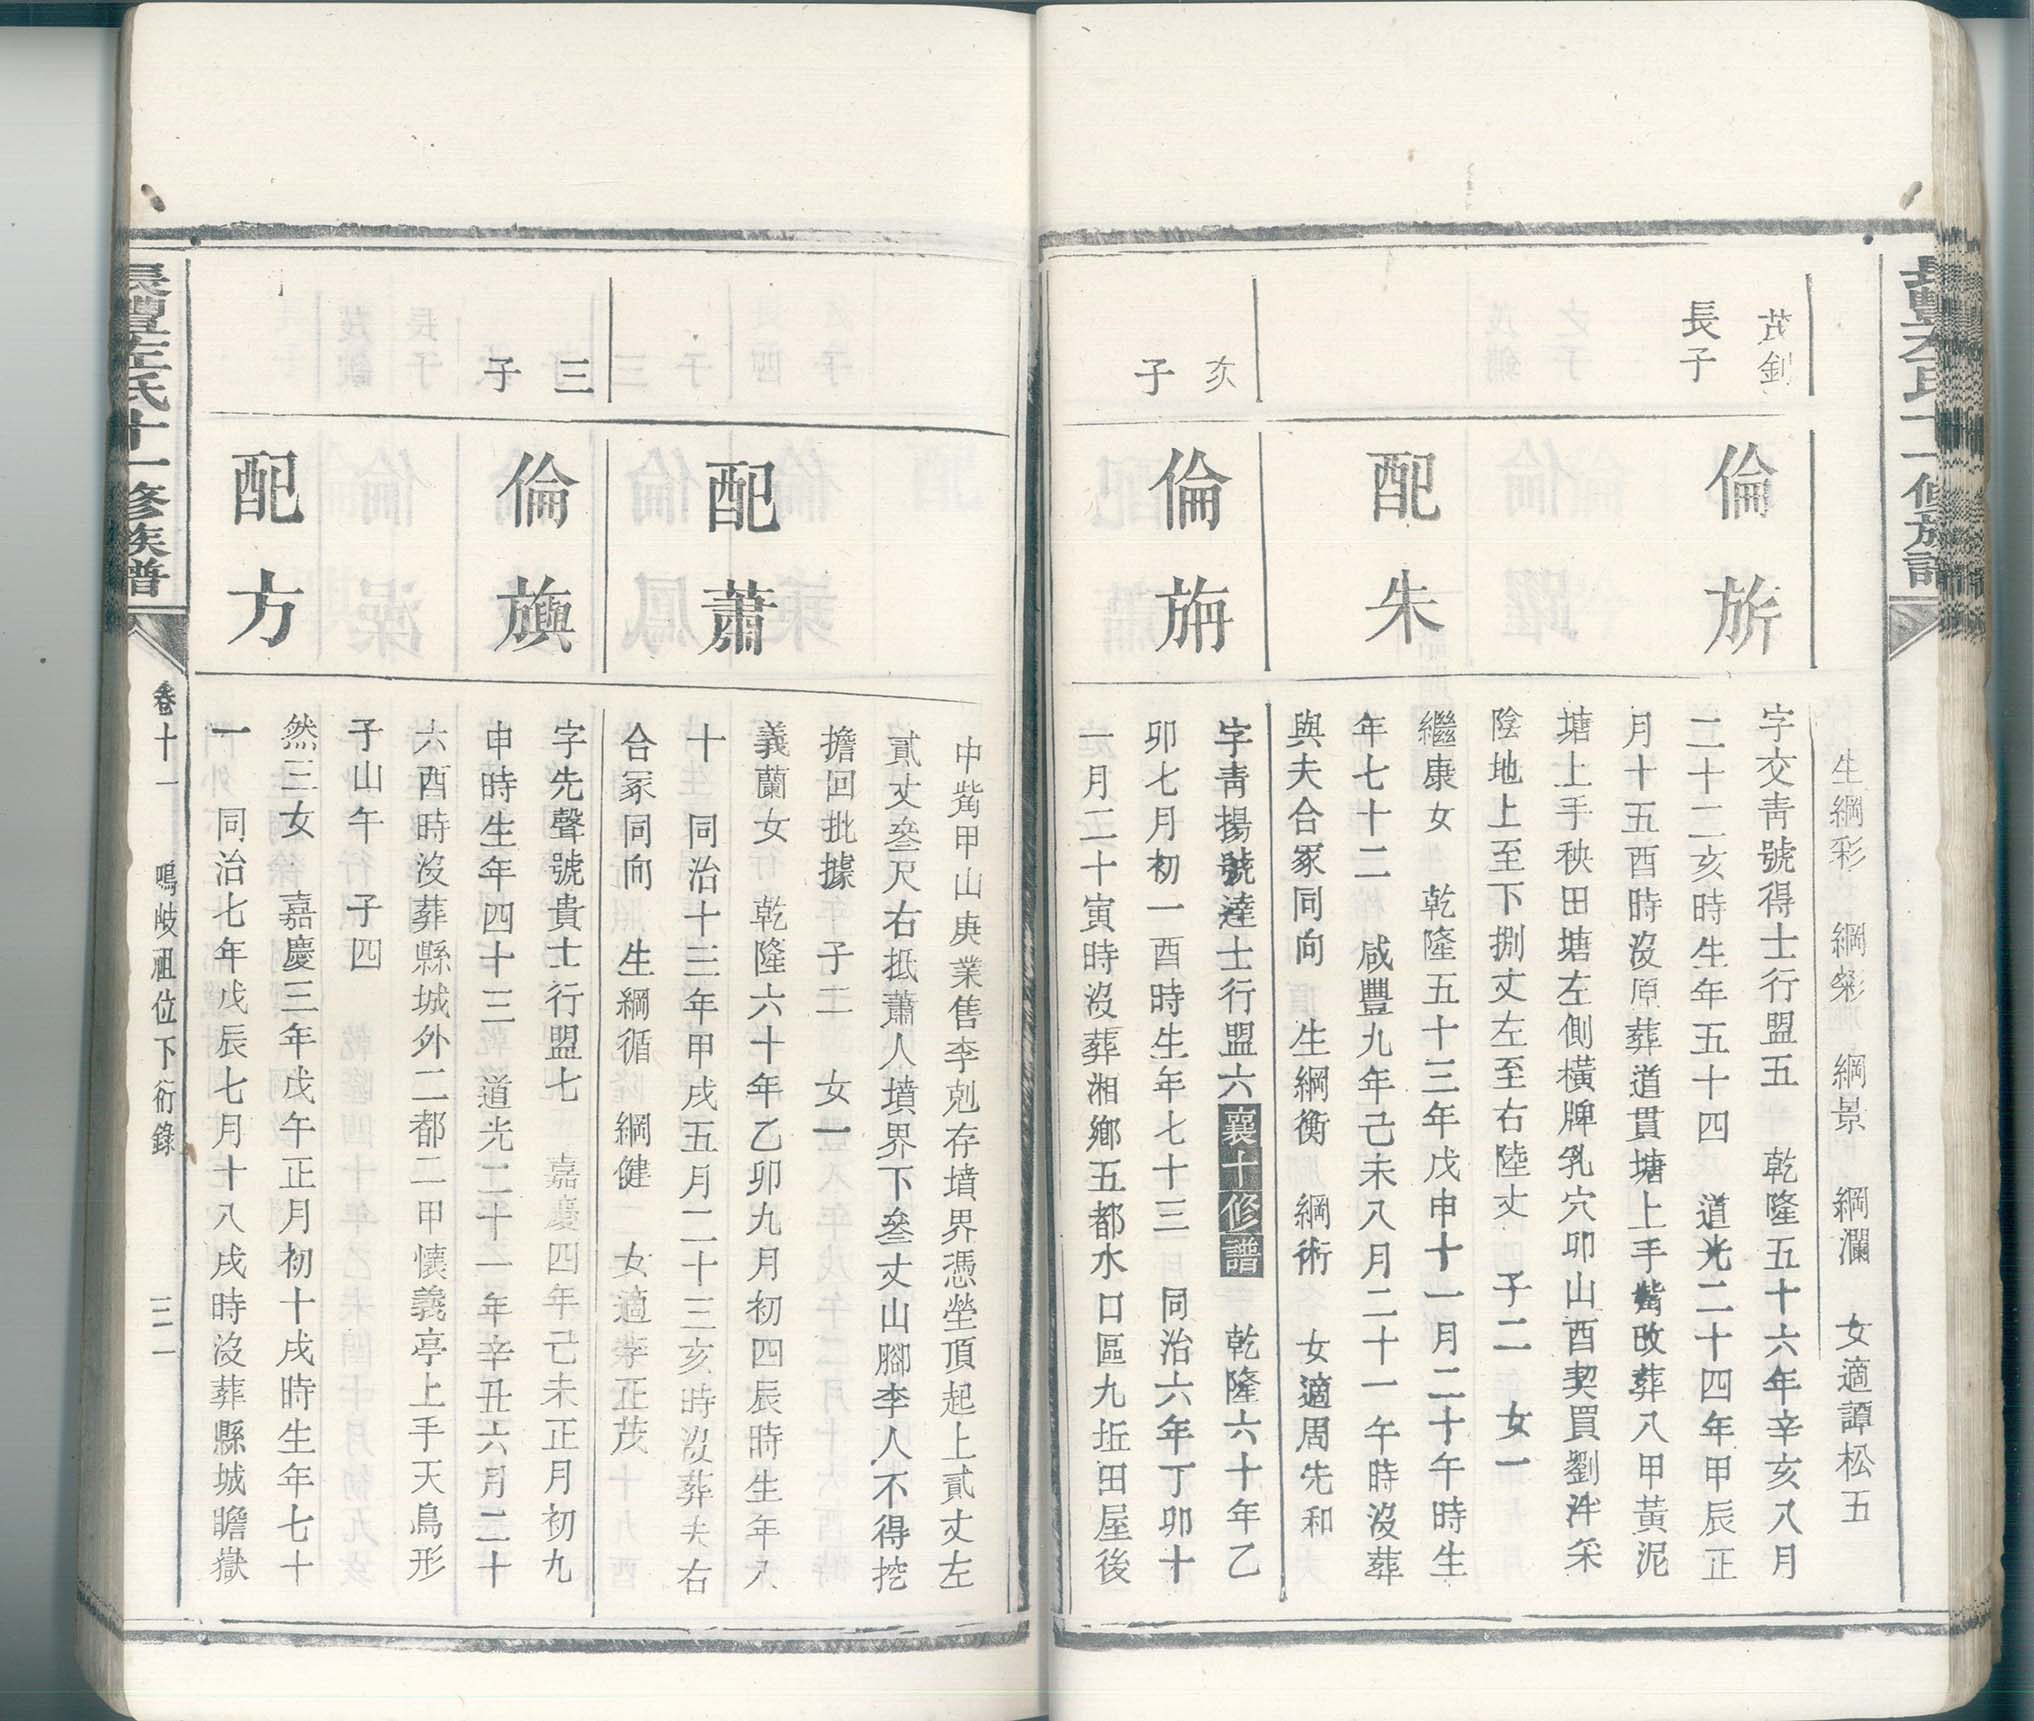 生綱彩　綱粲　綱景　綱瀾　女適譚松五
茂釗
長子
倫旂
字交靑號得士行盟五　乾隆五十六年辛亥八月
二十二亥時生年五十四　道光二十四年甲辰正
月十五酉時沒原葬道貫塘上手觜改葬八甲黃泥
塘上手秧田塘左側橫牌乳穴卯山酉契買劉泮采
陰地上至下捌丈左至右陸丈　子二　女一
配朱
繼康女　乾隆五十三年戊申十一月二十午時生
年七十二　咸豐九年己未八月二十一午時沒葬
與夫合冢同向　生綱衡　綱術　女適周先和
次
子
倫旃
字靑揚號達士行盟六襄十修譜　乾隆六十年乙
卯七月初一酉時生年七十三　同治六年丁卯十
一月二十寅時沒葬湘鄉五都水口區九坵田屋後
中觜甲山庚業售李剋存墳界憑塋頂起上貳丈左
貳丈叁尺右抵蕭人墳界下叁丈山腳李人不得挖
擔回批據　子二　女一
配蕭
義蘭女　乾隆六十年乙卯九月初四辰時生年八
十　同治十三年甲戌五月二十三亥時沒葬夫右
合冢同向　生綱循　綱健　女適李正茂
三
子
倫旟
字先聲號貴士行盟七　嘉慶四年己未正月初九
申時生年四十三　道光二十一年辛丑六月二十
六酉時沒葬縣城外二都二甲懷義亭上手天鳥形
子山午向　子四
配方
然三女　嘉慶三年戊午正月初十戌時生年七十
一　同治七年戊辰七月十八戌時沒葬縣城瞻嶽
左氏十一修族譜
卷十一　鳴岐祖位下衍錄